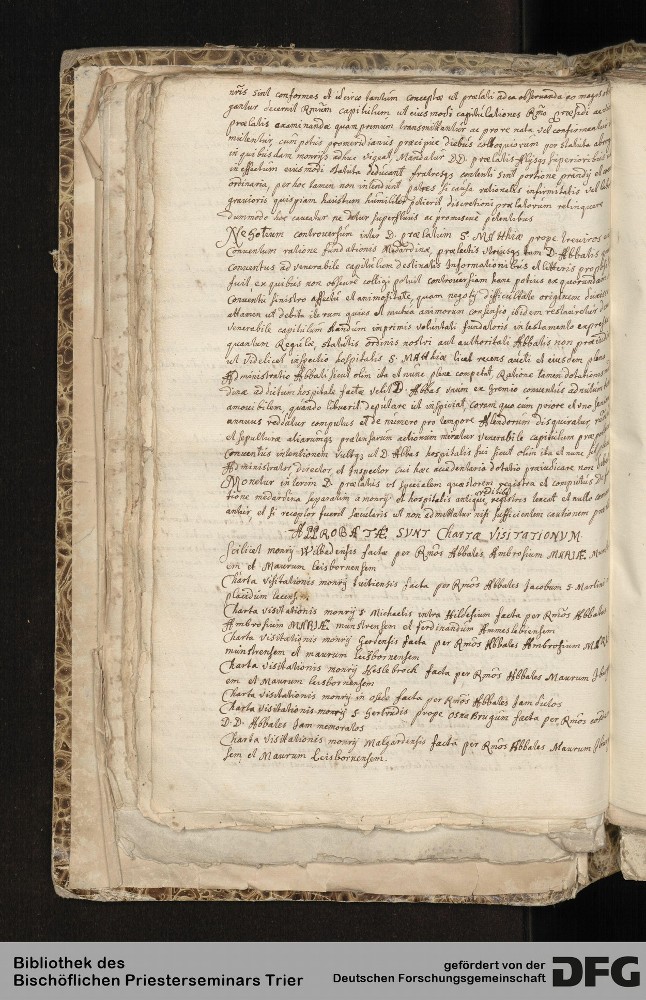 nr̃is sint conformes et idcirco tantum conceptæ ut prælati ad ea observanda
gantur decernit Rmũm capitulum ut eiusmodi capitulationes Rmo Præsidi
prælatis examinandæ quam primum transmittantur ac prove nata vel confirmentur
mittentur, cum potus pomeridianus præcipue diebus colloquiorum per statuta
in quibusdam monrijs adhuc vigeat, Mandatur D.D. prælatis alijsqz Superioribus ut
in effectum eiusmodi statuta deducant fratresqz contenti sint portione prandij et
ordinaria, per hoc tamen non intendunt patres si causa rationabilis infirmitatis vel
gravioris quispiam haustum humiliter petierit discretioni prælatorum relinquere
dummodo hic caveatur ne detur superfluis ac promiscue petentibus
Negotium controversum inter D. prælatum S. MAtthiæ prope treviros
Conventum ratione fundationis Medardinæ, prælectis utriusqz tam D. Abbatis
conventus ad venerabile capitulum destinatis Informationibus et litteris
fuit, ex quibus non obscure colligi potuit controversiam hanc potius ex quorundam
Conventu sinistro affectu et animositate, quam negotij difficultate originem
attamen ut debita iterum quies et mutua animorum consensio ibidem restauretur
venerabile capitulum standum imprimis voluntati fundatoris in testamento expressæ
quantum Regulæ, statutis ordinis nostri aut authoritati Abbatis non
ut videlicet inspectio hospitalis S. MAtthiæ licet recens aucti et eiusdem plena
Administratio Abbati sicut olim ita et nunc plene competat. Ratione tamen dotationis
dinæ ad dictum hospitale factæ velit D. Abbas unum ex gremio conventus ad nutum
amovibilem quando libuerit deputare ut inspiciat, coram quo cum priore et uno
annuus reddatur computus et de numero pro tempore Alendorum disquiratur
et sepultura aliarumqz pretensarum actionum miratur venerabile capitulum
conventus intentionem vultqz ut D. Abbas hospitalis sui sicut olim ita et nunc sit
Administrator, Director, et Inspector cui hæc accedentaria dotatio præiudicare non
Monetur interim D. prælatus ut specialem quæstorem registra et computus
tione medardina separatim à monrij et hospitalis antiqui reditibus registris teneat et nullo
antur et si receptor fuerit sæcularis ut non admittatur nisi sufficientem cautionem
APPROBATÆ SUNT Chartæ VISITATIONUM
Scilicet monrij Wilbadensis factæ per Rmos Abbates Ambrosium MARIÆ
em et Maurum Leisbornensem
Charta visitationis monrij tuitiensis facta per Rmos Abbates Jacobum S. Martini
placidum lacens.
Charta visitationis monrij S Michaelis intra Hildesium facta per Rmos Abbates
Ambrosium MARIÆ munstrensem et ferdinandum Ammeslebiensem
Charta visitationis monrij Gerdensis facta per Rmos Abbates Ambrosium
munstrensem et maurum leisbornensem
Charta visitationis monrij Heslebrock facta per Rmos Abbates Maurum
em et Maurum leisbornensem
Charta visitationis monrij in osede facta per Rmos Abbates Jam dictos
Charta visitationis monrij S Gertrudis prope OsnaBrugum facta per Rmos
D.D. Abbates Jam memoratos
Charta visitationis monrij malgardensis facta per Rmos Abbates Maurum
sem et Maurum Leisbornensem.
Bibliothek des
Bischöflichen Priesterseminars Trier
gefördert von der
Deutschen Forschungsgemeinschaft
DFG